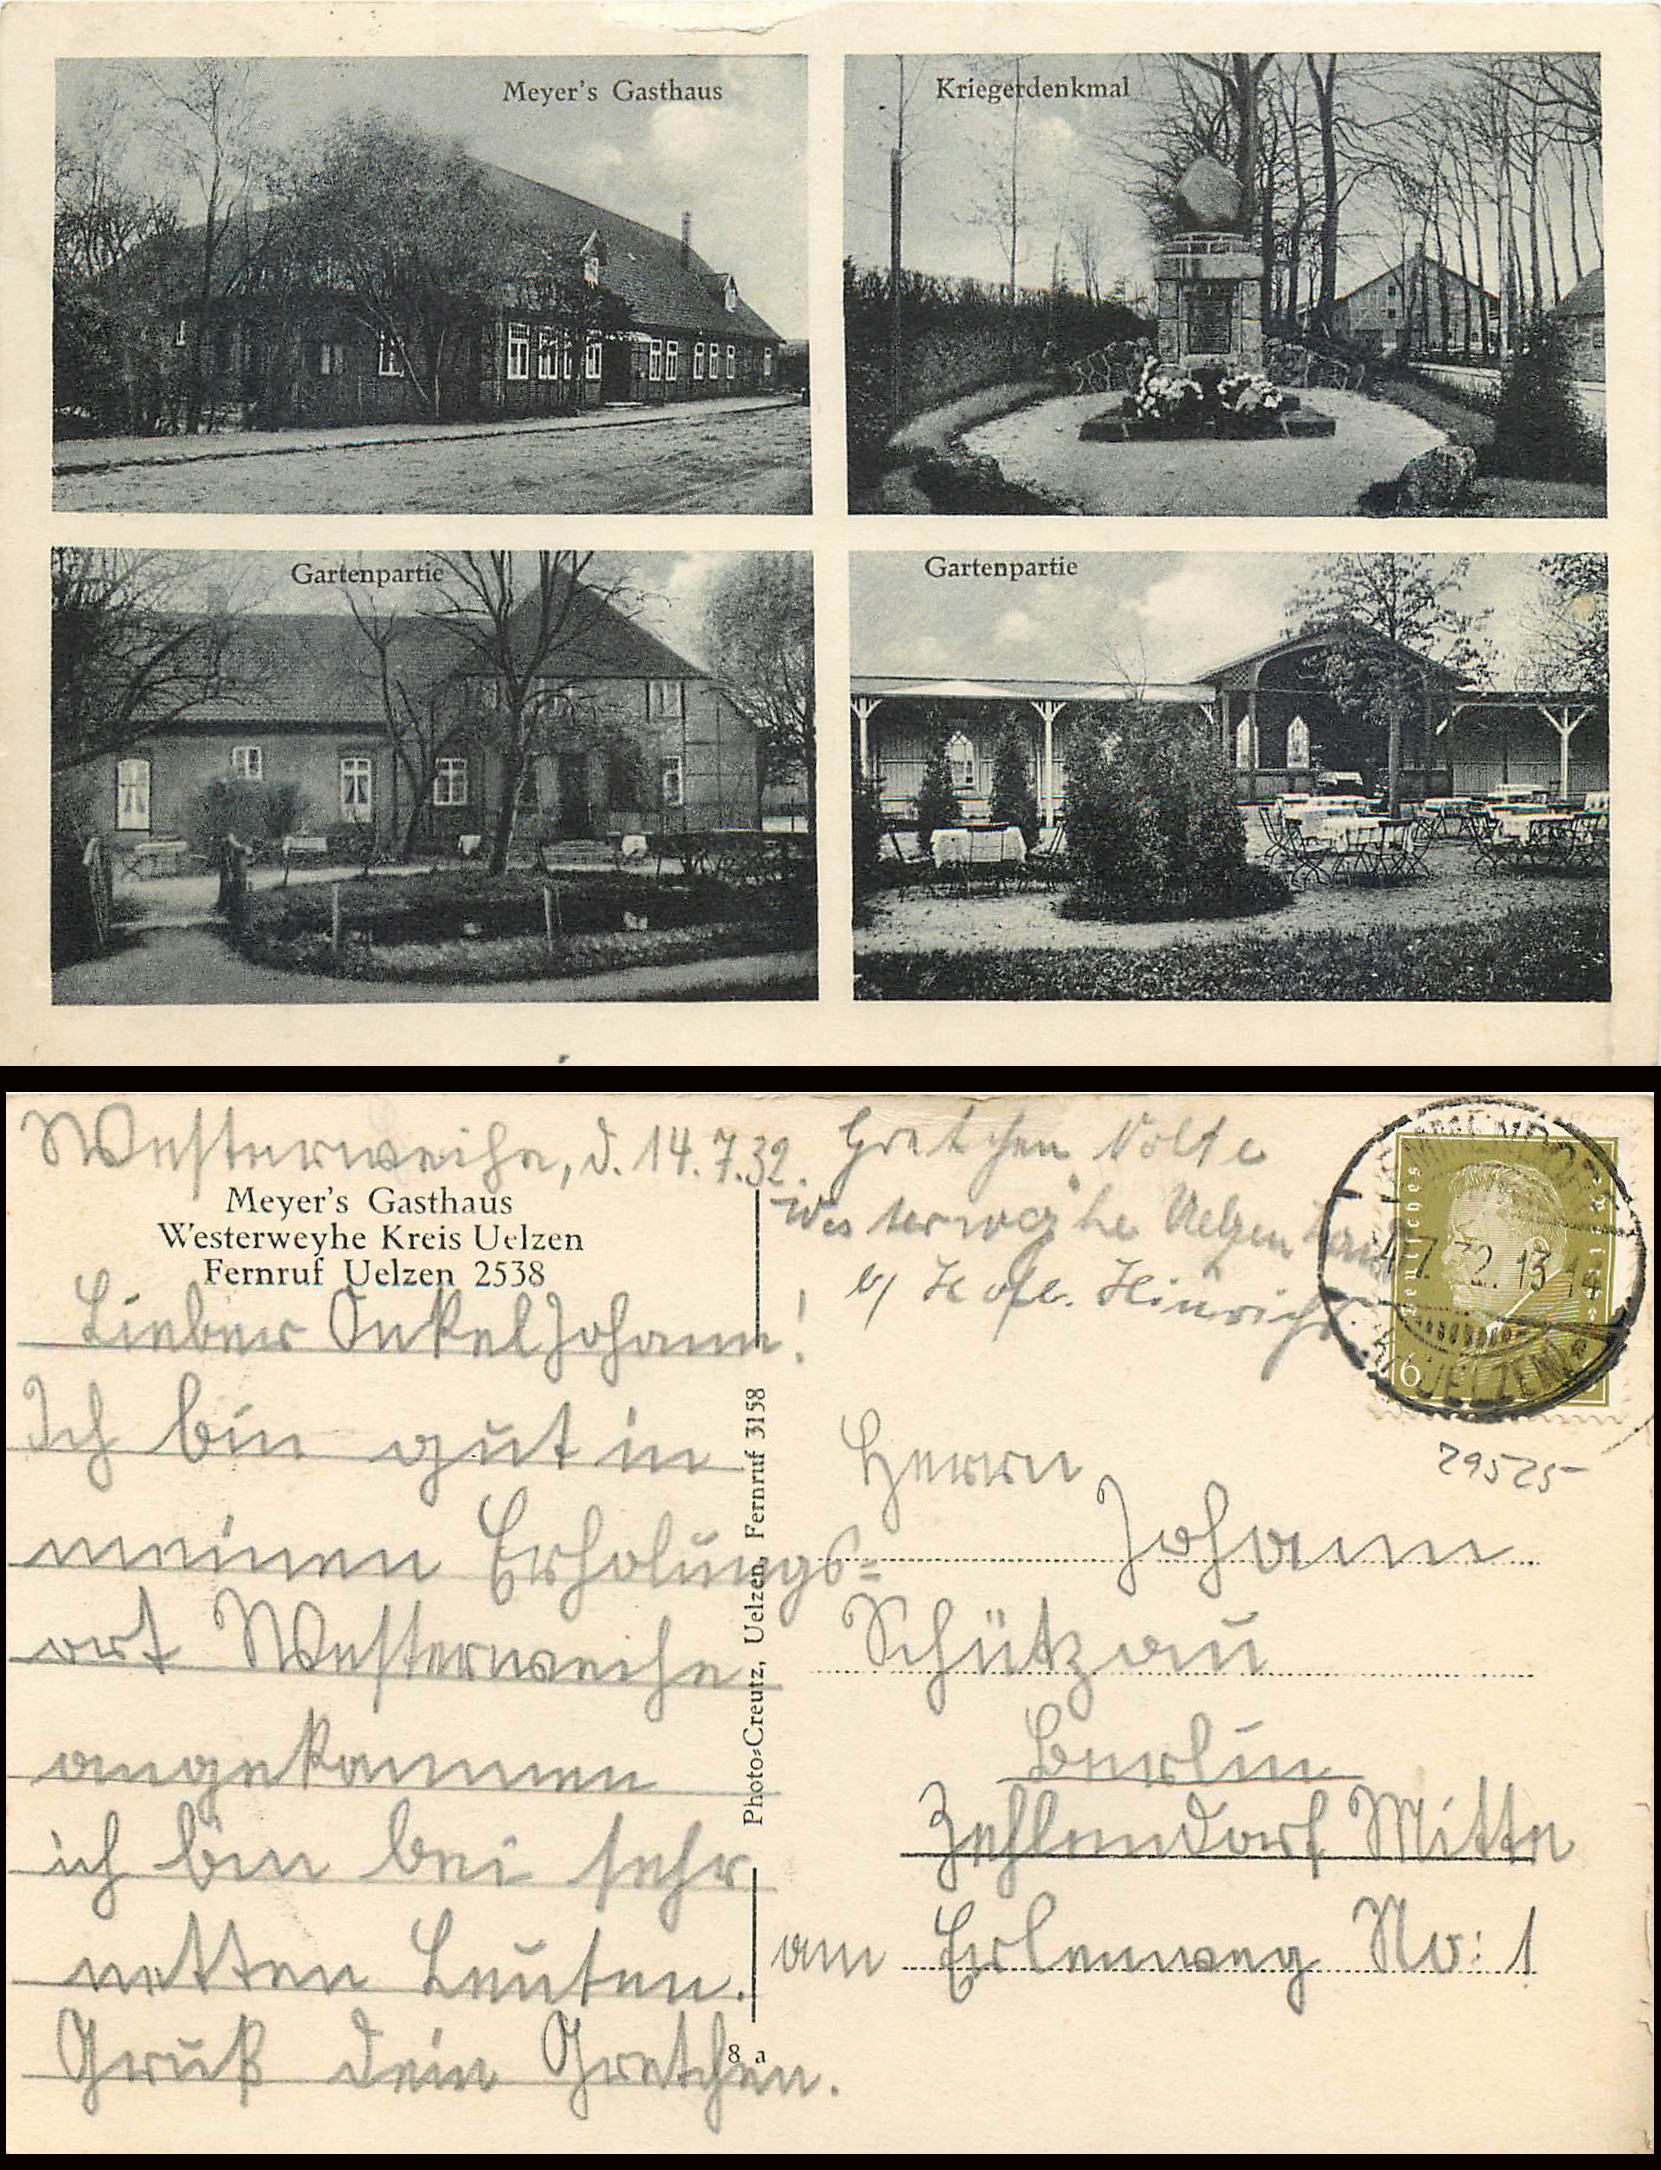 Meyer's Gasthaus
Kriegerdenkmal
Gartenpartie
Gartenpartie
Westerweihe, d. 14.7.32.
Meyer's Gasthaus
Westerweyhe Kreis Uelzen
Fernruf Uelzen 2538
Lieber Onkel Johann!
Ich bin gut in
meinen Erholungs=
ort Westerweihe
angekommen
ich bin bei sehr
netten Leuten.
Gruß dein Gretchen.
Photo-Creutz, Uelzen, Fernruf 3158
8 a
Gretchen Nolte
Westerweyhe Uelzen Land
b/ Hofb. Hinrichs.
Deutsches
6
7.32.13-14
UELZEN
29525
Herrn
Johann
Schützau
Berlin
Zehlendorf Mitte
am Erlenweg No: 1